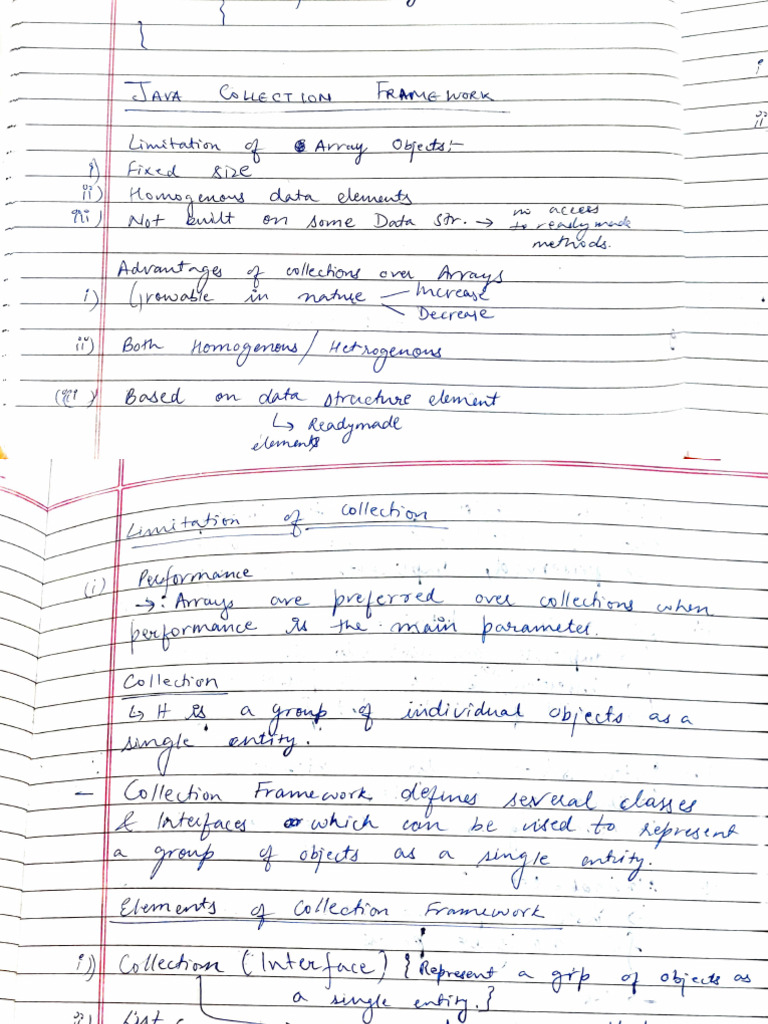 }
}
JAVA COLLECTION FRAMEWORK
Limitation of Array Objects:-
i) Fixed size
ii) Homogenous data elements
iii) Not built on some Data Str. → no access
to readymade
methods.
Advantages of collections over Arrays
i) Growable in nature — Increase
Decrease
ii) Both Homogenous / Hetrogenous
(iii) Based on data structure element
↳ Readymade
elements
Limitation of collection
(i) Performance
→: Arrays are preferred over collections when
performance is the main parameter.
Collection
↳ It is a group of individual objects as a
single entity.
– Collection Framework defines several classes
& Interfaces which can be used to represent
a group of objects as a single entity.
Elements of Collection Framework
i)) Collection (Interface) { Represent a grp of objects as
a single entity. }
ii) List
i
ii